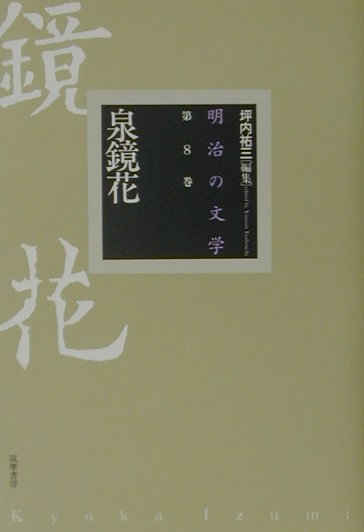 鏡花
坪内祐三[編集]
edited by Yuzo Tsubouchi
明治の文学
第8巻
泉鏡花
筑摩書房
Kyoka Izumi